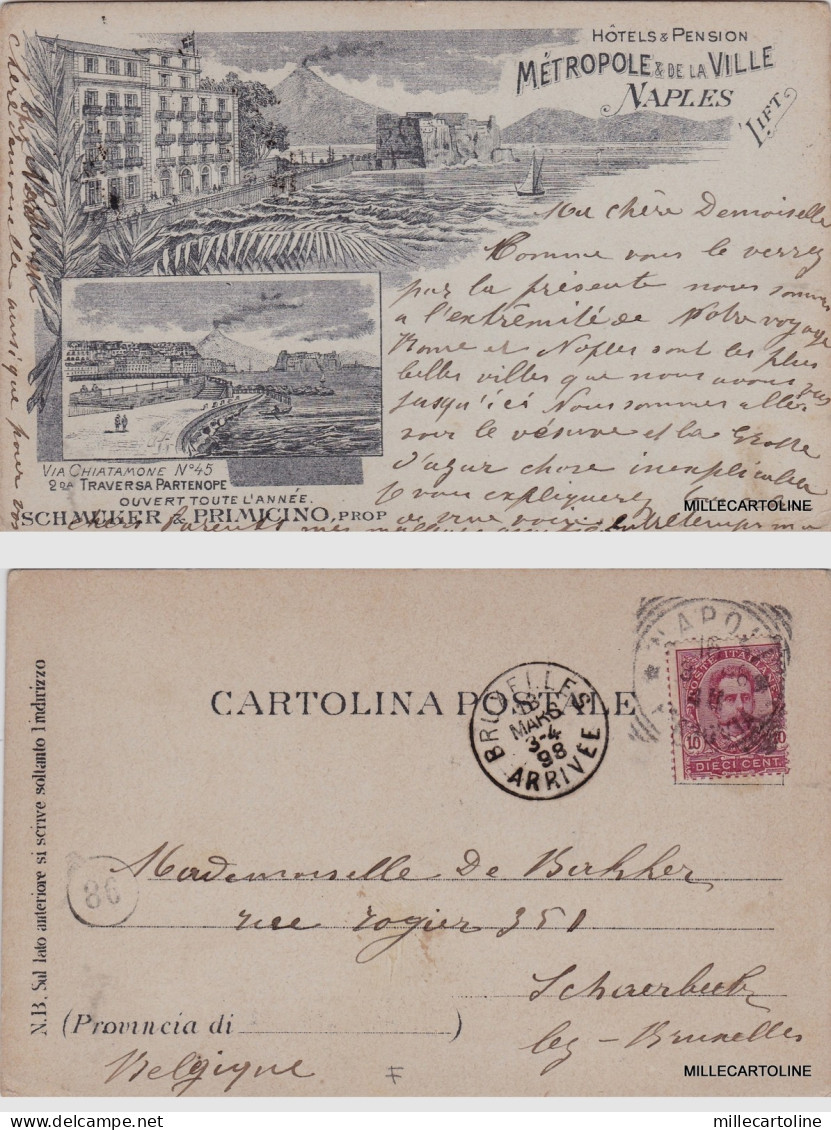 HÔTELS & PENSION
MÉTROPOLE & DE LA VILLE
NAPLES
LIFT
Ma chère Demoiselle
Comme vous le verrez
par la présente nous sommes
a l'extrémité de Notre voyage
Rome et Naples sont les plus
belles villes que nous avons vus
jusqu'ici Nous sommes allés
sur le vésuve et la Grotte
d'azur chose inexplicable
VIA CHIATAMONE Nº 45
2DA TRAVERSA PARTENOPE
OUVERT TOUTE L'ANNÉE.
SCHMUKER & PRIMICINO, PROP
je vous expliquerez
de vive voix
chers parents mes
chère Demoiselle ainsi que pour vos
MILLECARTOLINE
N.B. Sul lato anteriore si scrive soltanto l'indirizzo
CARTOLINA POSTALE
BRUXELLES
MARS
3-4
98
ARRIVÉE
NAPOLI
POSTE ITALIANE
10
DIECI CENT.
86
Mademoiselle De Bakker
rue rogier 351
Schaerbeek
(Provincia di )
lez-Bruxelles
Belgique
F
MILLECARTOLINE
delcampe.net
millecartoline